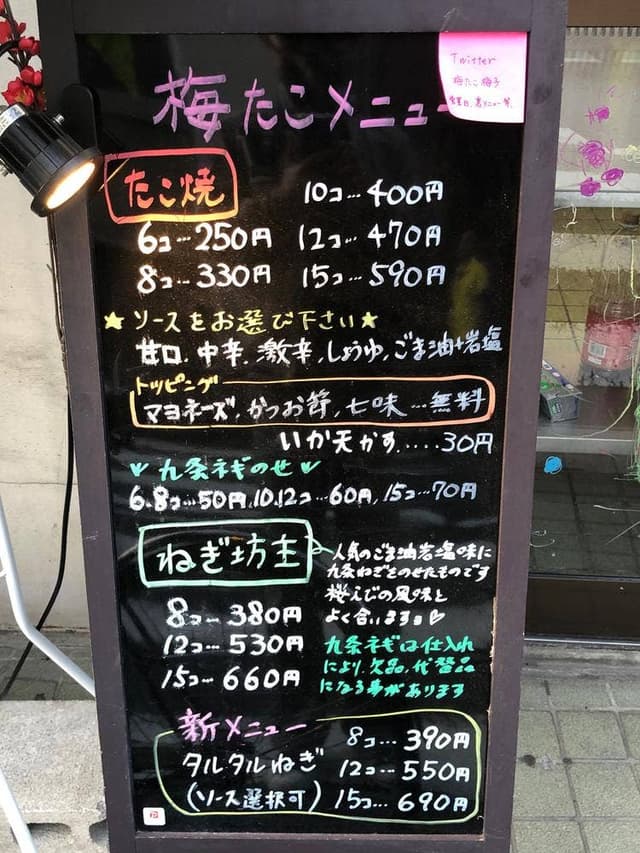 Twitter
梅たこ梅子
営業日、裏メニュー等。
梅たこメニュー
たこ焼
10コ…400円
6コ…250円 12コ…470円
8コ…330円 15コ…590円
★ソースをお選び下さい★
甘口、中辛、激辛、しょうゆ、ごま油+岩塩
トッピング
マヨネーズ、かつお節、七味…無料
いか天かす.....30円
九条ネギのせ
6.8コ…50円、10.12コ…60円、15コ…70円
ねぎ坊主
人気のごま油岩塩味に
九条ねぎをのせたものです
桜えびの風味と
よく合います
8コ…380円
12コ…530円
15コ…660円
九条ネギは仕入れ
により、欠品、代替品
になる事があります
新メニュー
タルタルねぎ
(ソース選択可)
8コ…390円
12コ…550円
15コ…690円